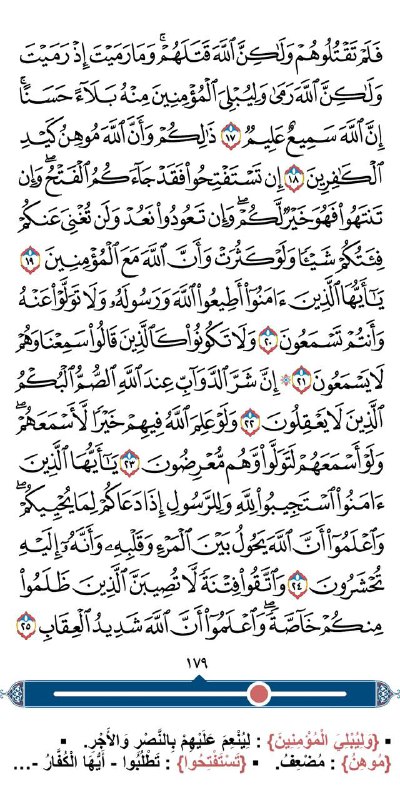 فَلَمْ تَقْتُلُوهُمْ وَلَٰكِنَّ ٱللَّهَ قَتَلَهُمْ ۚ وَمَا رَمَيْتَ إِذْ رَمَيْتَ
وَلَٰكِنَّ ٱللَّهَ رَمَىٰ ۚ وَلِيُبْلِيَ ٱلْمُؤْمِنِينَ مِنْهُ بَلَآءً حَسَنًا ۚ
إِنَّ ٱللَّهَ سَمِيعٌ عَلِيمٌ ١٧ ذَٰلِكُمْ وَأَنَّ ٱللَّهَ مُوهِنُ كَيْدِ
ٱلْكَٰفِرِينَ ١٨ إِن تَسْتَفْتِحُوا۟ فَقَدْ جَآءَكُمُ ٱلْفَتْحُ ۖ وَإِن
تَنتَهُوا۟ فَهُوَ خَيْرٌ لَّكُمْ ۖ وَإِن تَعُودُوا۟ نَعُدْ وَلَن تُغْنِىَ عَنكُمْ
فِئَتُكُمْ شَيْـًٔا وَلَوْ كَثُرَتْ وَأَنَّ ٱللَّهَ مَعَ ٱلْمُؤْمِنِينَ ١٩
يَٰٓأَيُّهَا ٱلَّذِينَ ءَامَنُوٓا۟ أَطِيعُوا۟ ٱللَّهَ وَرَسُولَهُۥ وَلَا تَوَلَّوْا۟ عَنْهُ
وَأَنتُمْ تَسْمَعُونَ ٢٠ وَلَا تَكُونُوا۟ كَٱلَّذِينَ قَالُوا۟ سَمِعْنَا وَهُمْ
لَا يَسْمَعُونَ ٢١ ۞ إِنَّ شَرَّ ٱلدَّوَآبِّ عِندَ ٱللَّهِ ٱلصُّمُّ ٱلْبُكْمُ
ٱلَّذِينَ لَا يَعْقِلُونَ ٢٢ وَلَوْ عَلِمَ ٱللَّهُ فِيهِمْ خَيْرًا لَّأَسْمَعَهُمْ ۖ
وَلَوْ أَسْمَعَهُمْ لَتَوَلَّوا۟ وَّهُم مُّعْرِضُونَ ٢٣ يَٰٓأَيُّهَا ٱلَّذِينَ
ءَامَنُوا۟ ٱسْتَجِيبُوا۟ لِلَّهِ وَلِلرَّسُولِ إِذَا دَعَاكُمْ لِمَا يُحْيِيكُمْ ۖ
وَٱعْلَمُوٓا۟ أَنَّ ٱللَّهَ يَحُولُ بَيْنَ ٱلْمَرْءِ وَقَلْبِهِۦ وَأَنَّهُۥٓ إِلَيْهِ
تُحْشَرُونَ ٢٤ وَٱتَّقُوا۟ فِتْنَةً لَّا تُصِيبَنَّ ٱلَّذِينَ ظَلَمُوا۟
مِنكُمْ خَآصَّةً ۖ وَٱعْلَمُوٓا۟ أَنَّ ٱللَّهَ شَدِيدُ ٱلْعِقَابِ ٢٥
١٧٩
▪ {وَلِيُبْلِيَ الْمُؤْمِنِينَ} : لِيُنْعِمَ عَلَيْهِمْ بِالنَّصْرِ وَالأَجْرِ. ▪
{مُوهِنُ} : مُضْعِفُ. ▪ {تَسْتَفْتِحُوا} : تَطْلُبُوا - أَيُّهَا الْكُفَّارُ -...